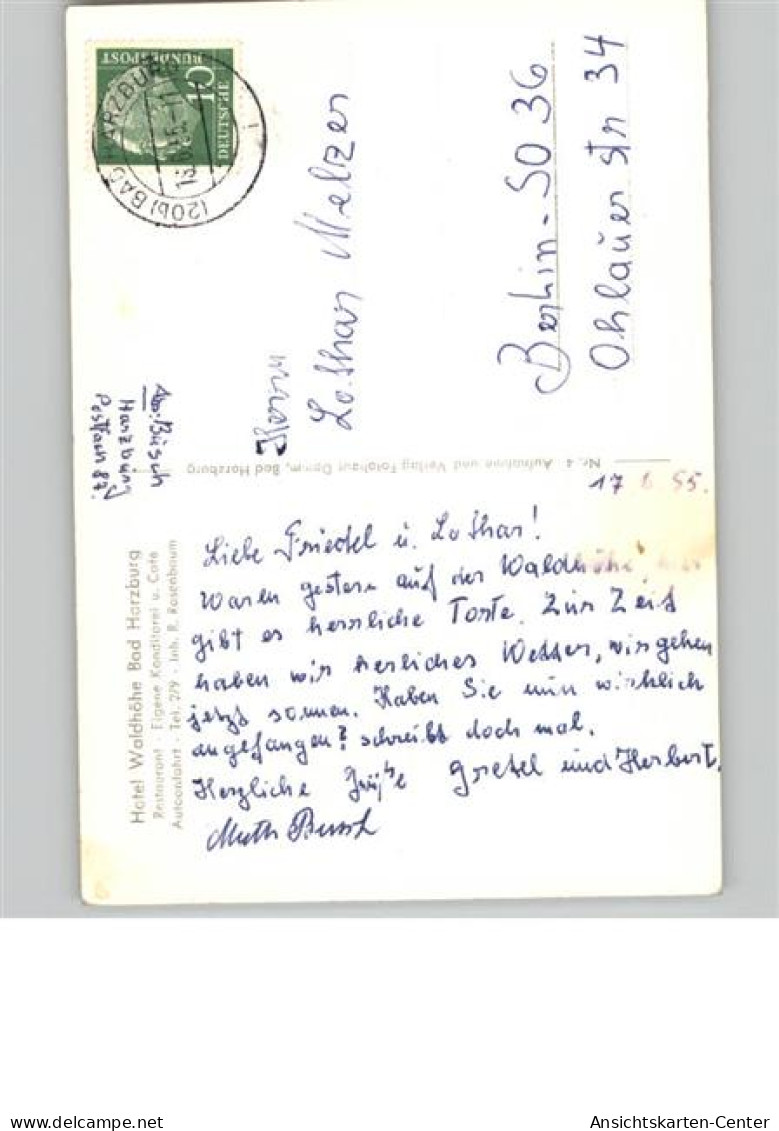 Hotel Waldhöhe Bad Harzburg
Restaurant · Eigene Konditorei u. Café
Autoanfahrt · Tel. 279 · Inh. R. Rosenbaum
17 6 55.
Liebe Friedel u. Lothar!
Waren gestern auf der Waldhöhe,
gibt es herrliche Torte. Zur Zeit
haben wir herliches Wetter, wir gehen
jetzt sonnen. Haben Sie nun wirklich
angefangen? schreibt doch mal.
Herzliche Grüße Gretel und Herbert.
Busch
Harzburg
Nr. 4 Aufnahme und Verlag Fotohaus Bad Harzburg
DEUTSCHE
BUNDESPOST
10
(20b) BAD HARZBURG
Herrn
Lothar Melzer
Berlin-SO 36
Ohlauer Str 34
delcampe.net
Ansichtskarten-Center